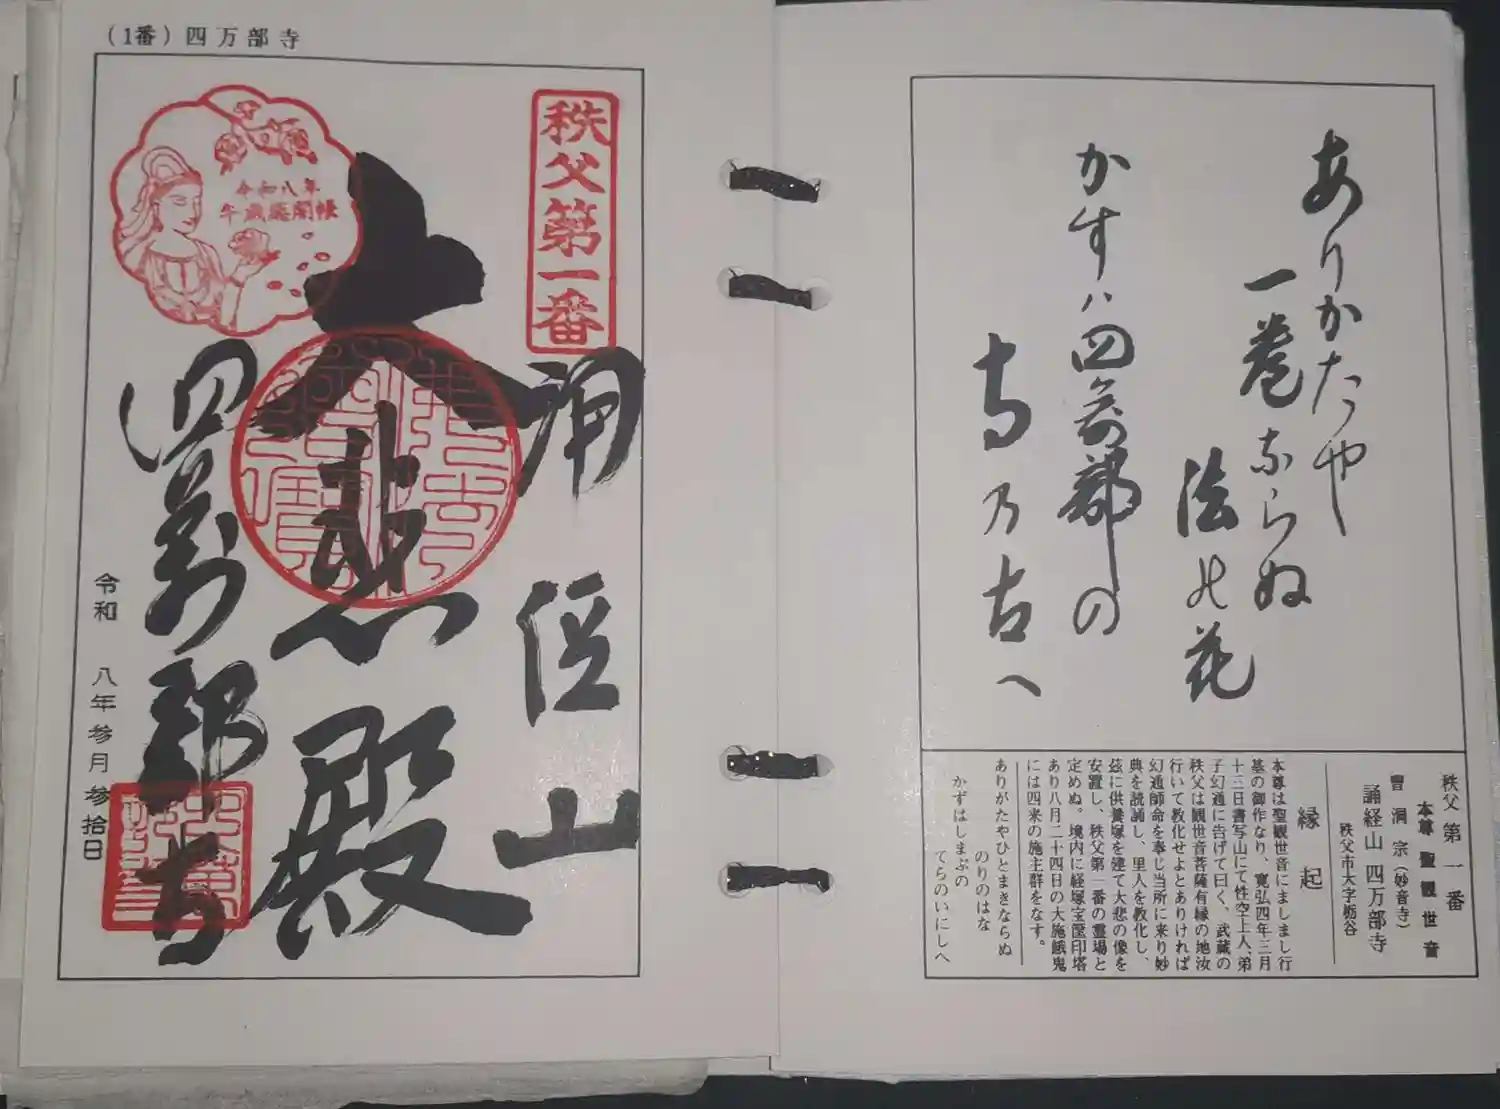 (1番) 四万部寺
秩父第一番
令和八年
午歳総開帳
大悲殿
四萬部寺
令和 八年 参月 参拾日
ありかたや
一巻ならぬ
法の花
かすハ四萬部の
寺乃古へ
秩父 第一番
本尊 聖観世音
曹洞宗(妙音寺)
誦経山 四万部寺
秩父市大字栃谷
縁起
本尊は聖観世音にましまし行
基の御作なり、寛弘四年三月
十三日書写山にて性空上人、弟
子幻通に告げて曰く、武蔵の
秩父は観世音菩薩有縁の地汝
行いて教化せよとありければ
幻通師命を奉じ当所に来り妙
典を読誦し、里人を教化し、
茲に供養塚を建て大悲の像を
安置し、秩父第一番の霊場と
定めぬ。境内に経塚宝篋印塔
あり八月二十四日の大施餓鬼
には四来の施主群をなす。
ありがたやひとまきならぬ
のりのはな
かずはしまぶの
てらのいにしへ